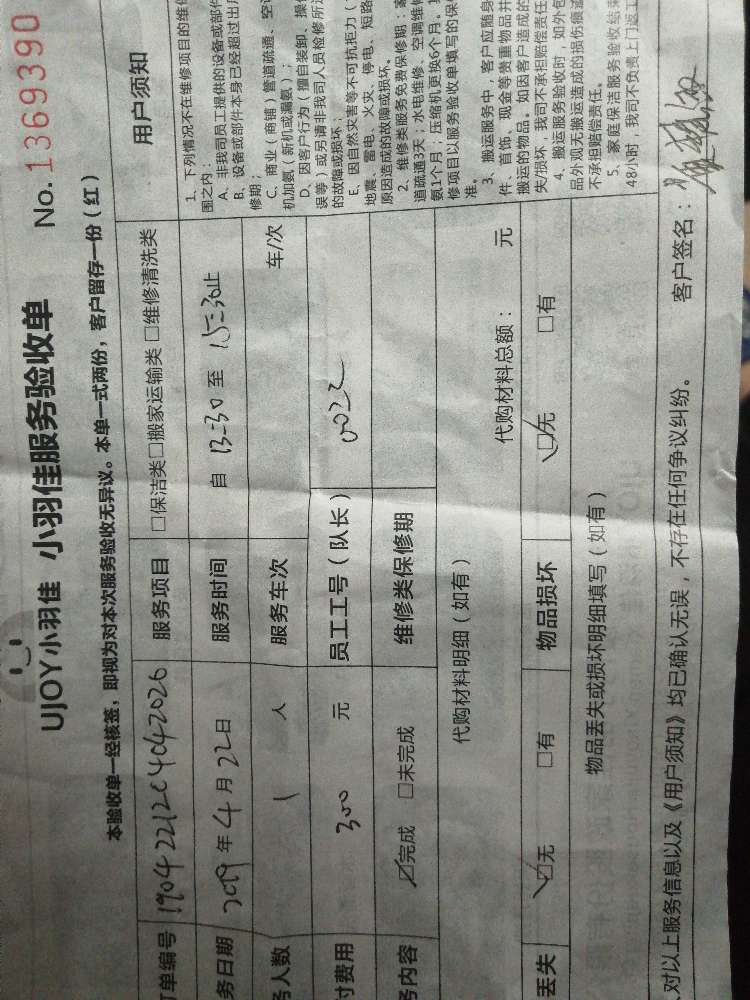 UJOY小羽佳 小羽佳服务验收单 No. 1369390
本验收单一经核签，即视为对本次服务验收无异议。本单一式两份，客户留存一份（红）
订单编号 190422121204042026 服务项目 □保洁类□搬家运输类 □维修清洗类
务日期 2019 年 4 月 22 日 服务时间 自 13:30 至 15:30止
务人数 1 人 服务车次 车/次
付费用 300 元 员工工号（队长） 0022
务内容 ☑完成 □未完成 维修类保修期
代购材料明细（如有） 代购材料总额： 元
丢失 ☑无 □有 物品损坏 ☑无 □有
物品丢失或损坏明细填写（如有）
用户须知
1、下列情况不在维修项目的维修
围之内：
A、非我司员工提供的设备或部件
B、设备或部件本身已经超过出厂
修期；
C、商业（商铺）管道疏通、空调
机加氨（新机或漏氨）；
D、因客户行为（擅自装卸、操作
误等）或另请非我司人员检修所造
的故障或损坏；
E、因自然灾害等不可抗拒力（
地震、雷电、火灾、停电、短路
原因造成的故障或损坏。
2、维修类服务免费保修期：家
道疏通3天；水电维修、空调维修
氨1个月；压缩机更换6个月。
修项目以服务验收单填写的保修
准。
3、搬运服务中，客户应随身
件、首饰、现金等贵重物品并
搬运的物品。如因客户造成的
失/损坏，我司不承担赔偿责任
4、搬运服务验收时，如外包
品外观无搬运造成的损伤痕迹
不承担赔偿责任。
5、家庭保洁服务验收结束
48小时，我司不负责上门返工
对以上服务信息以及《用户须知》均已确认无误，不存在任何争议纠纷。 客户签名：